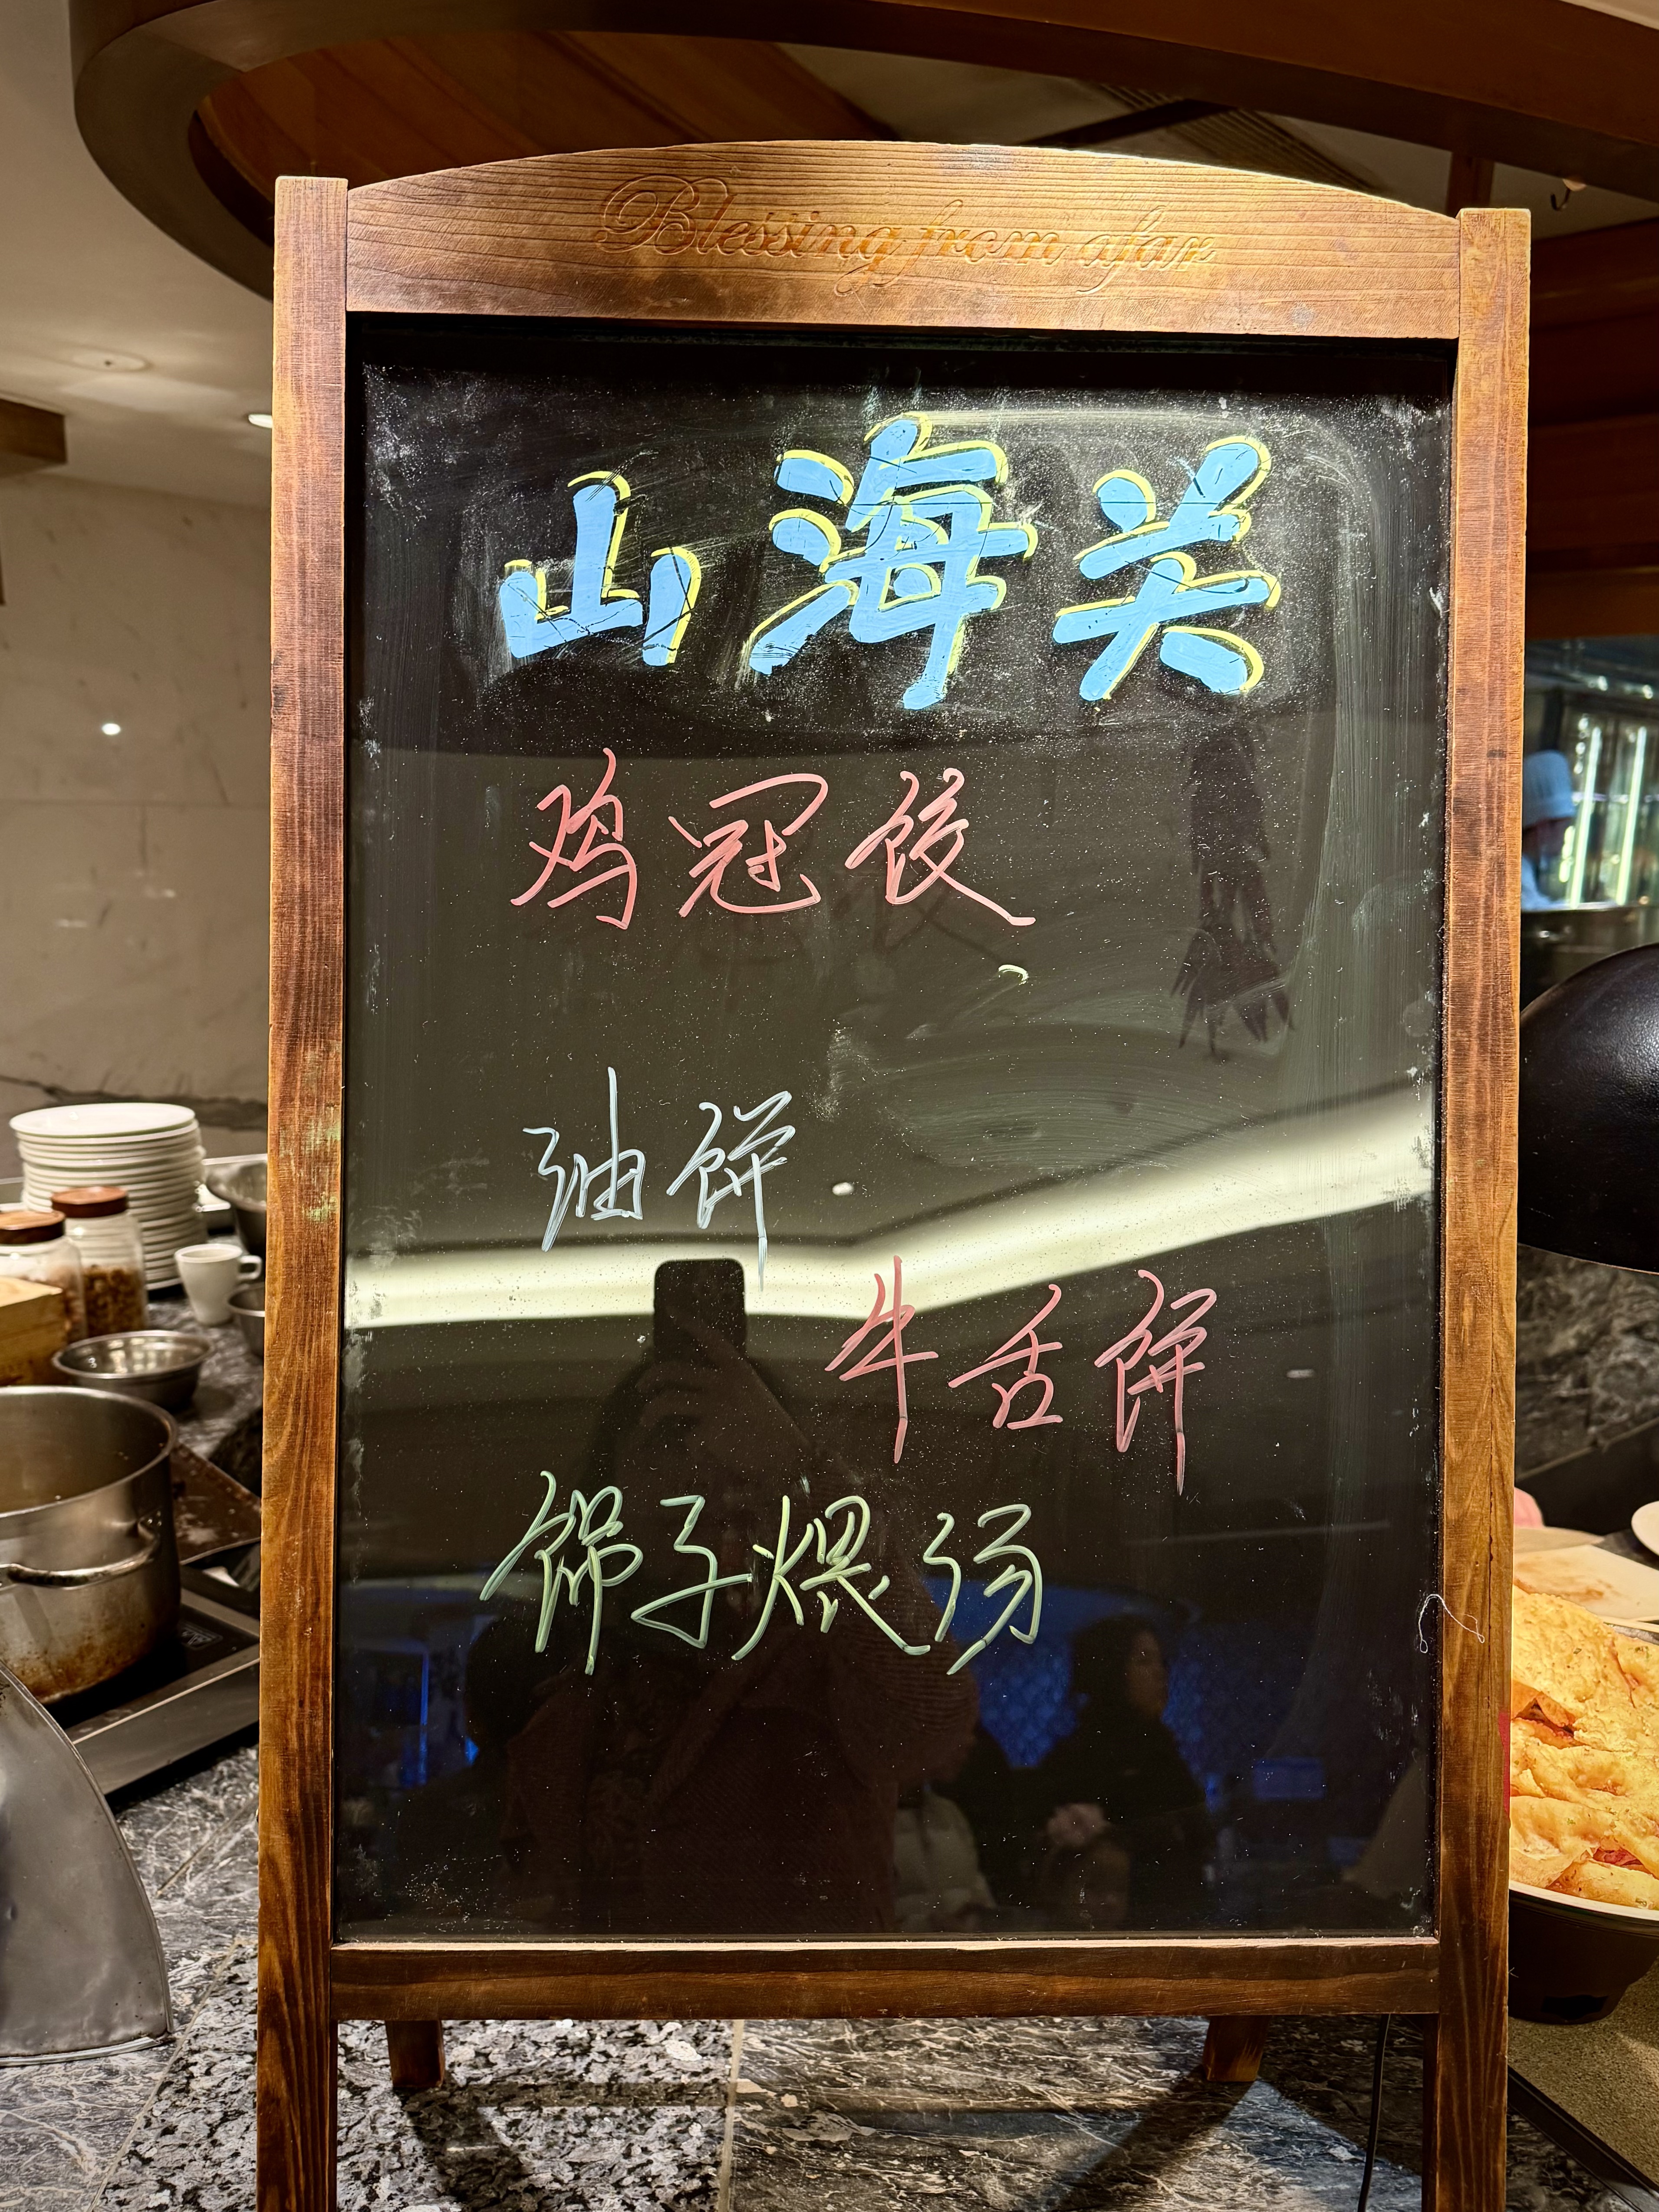 Blessing from afar
山海关
鸡冠饺
油饼
牛舌饼
锅子煨汤